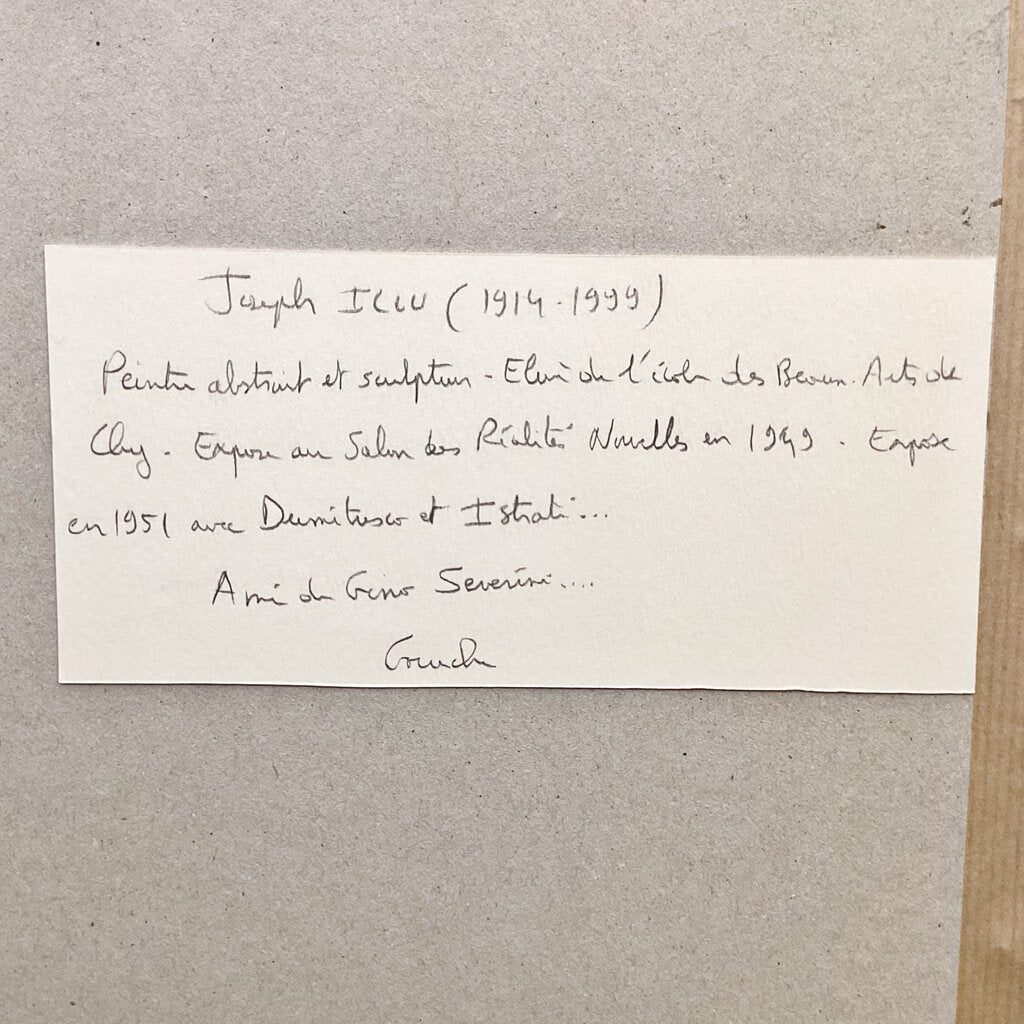 Joseph ILIU (1914-1999)
Peintre abstrait et sculpteur - Elève de l'école des Beaux-Arts de
Cluj - Expose au Salon des Réalités Nouvelles en 1949 - Expose
en 1951 avec Dumitresco et Istrati...
Ami de Gino Severini....
Gouache